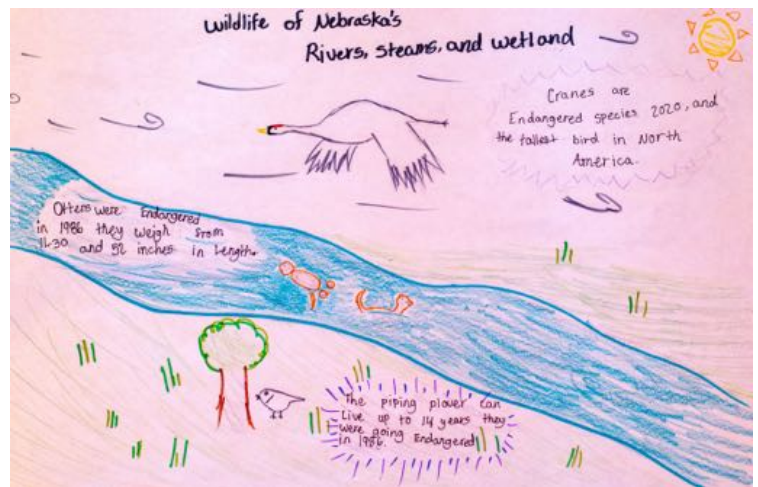 Wildlife of Nebraska's
Rivers, steams, and wetland
Cranes are
Endangered species 2020, and
the tallest bird in North
America.
Otters were Endangered
in 1986 they weigh from
11-30 and 52 inches in Length.
The piping plover can
Live up to 14 years they
were going Endangered
in 1986.